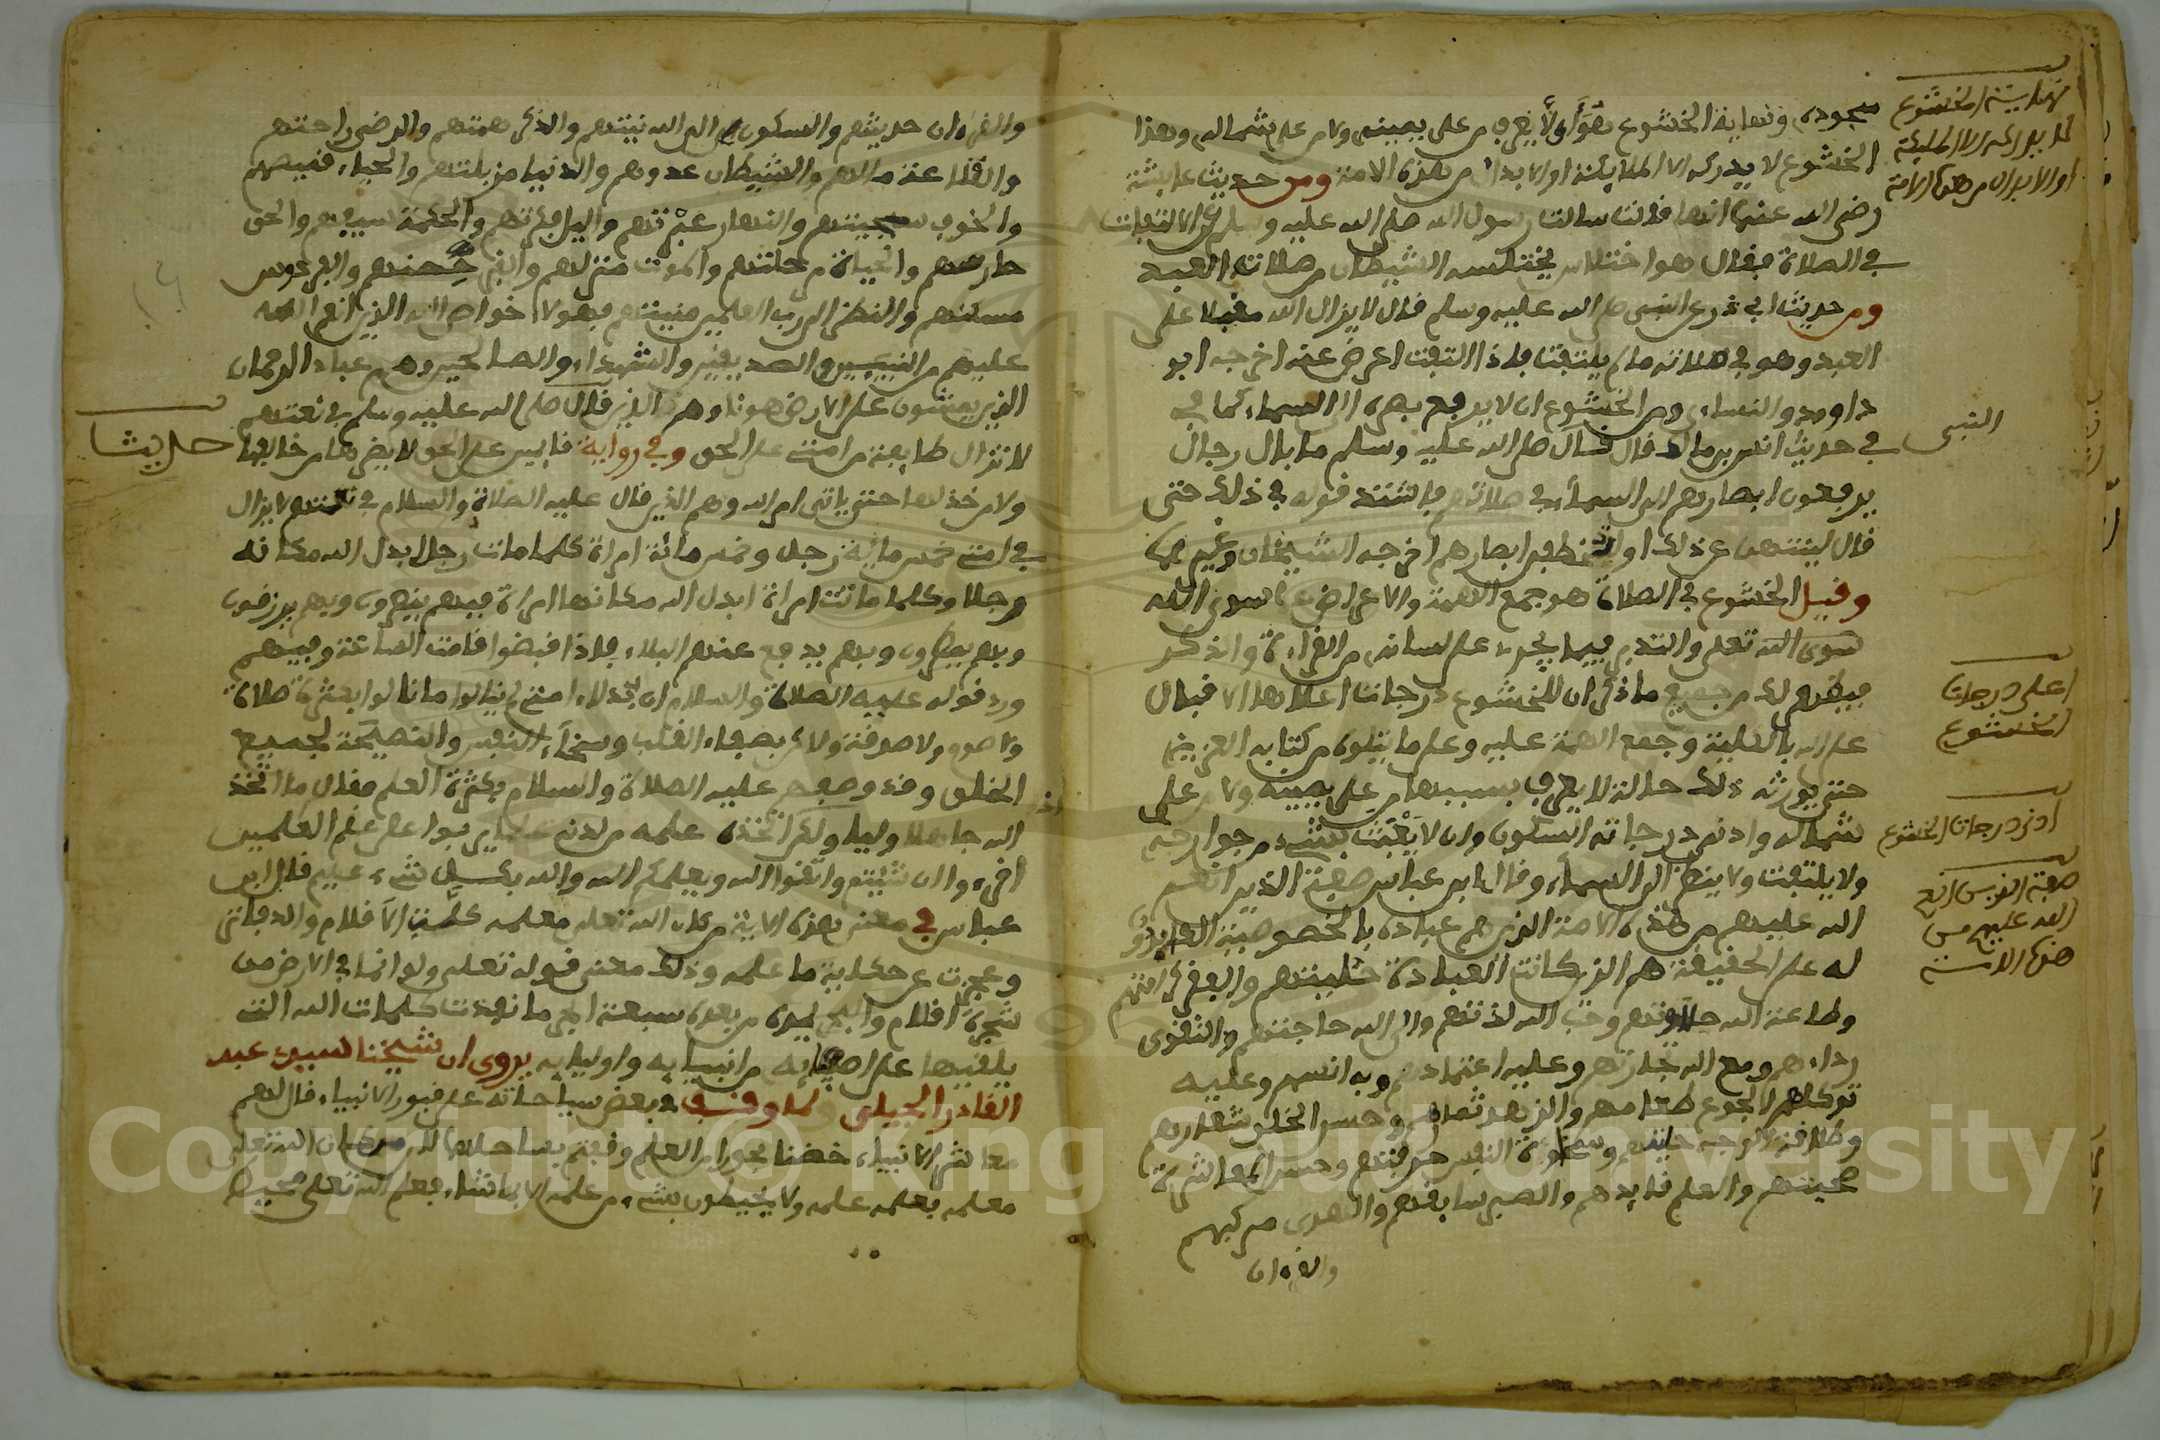 سجوده ونهاية الخشوع هو أن لا يعرف من على يمينه ولا من على شماله وهذا
الخشوع لا يدركه الا الملايكة او الابدال من هذه الامة ومن حديث عايشة
رضي الله عنها انها قالت سالت رسول الله صلى الله عليه وسلم عن الالتفات
في الصلاة فقال هو اختلاس يختلسه الشيطان من صلاة العبد
ومن حديث ابي ذر عن النبي صلى الله عليه وسلم قال لا يزال الله مقبلا على
العبد وهو في صلاته ما لم يلتفت فاذا التفت اعرض عنه اخرجه ابو
داوود والنساءي ومن الخشوع ان لا يرفع بصره الى السماء كما في
في حديث انس بن مالك قال قال صلى الله عليه وسلم ما بال رجال
يرفعون ابصارهم الى السماء في صلاتهم فاشتد قوله في ذلك حتى
قال لينتهن عن ذلك او لتخطفن ابصارهم اخرجه الشيخان وغيرهما
وقيل الخشوع في الصلاة هو جمع الهمة والاعراض عما سوى الله
سوى الله تعلى والتدبر فيما يجري على لسانه من القراءة والذكر
فيظهر لك من جميع ما ذكر ان للخشوع درجات اعلاها الاقبال
على الله بالكلية وجمع الهمة عليه وعلى ما يتلوه من كتابه العزيز
حتى يورثه ذلك حالة لا يعرف بسببها من على يمينه ولا من على
شماله وادنى درجاته السكون وان لا يَعْبَث بشيء من جوارحه
ولا يلتفت ولا ينظر الى السماء وقال ابن عباس صفة الذين انعم
الله عليهم من هذه الامة الذين هم عباده بالخصوصية العابدون
له على الحقيقة هم الذين كانت العبادة حليتهم والفقر كرامتهم
وطاعة الله حلاوتهم وحب الله لذتهم والى الله حاجتهم والتقوى
رداءهم ومع الله تجارتهم وعليه اعتمادهم وبه انسهم وعليه
توكلهم والجوع طعامهم والزهد ثمارهم وحسن الخلق شعارهم
وطلاقة الوجه حليتهم وسخاوة النفس حرفتهم وحسن المعاشرة
صحبتهم والعلم قايدهم والصبر سايقهم والهدى مركبهم
والقرءان
نهاية الخشوع
لا يدركه الا الملايكة
او الابدال من هذه الامة
النبي
اعلى درجات
الخشوع
ادنى درجات الخشوع
صفة الذين انعم
الله عليهم من
هذه الامة
والقرءان حديثهم والسكون الى الله نيتهم والذكر همتهم والرضى راحتهم
والقناعة مالهم والشيطان عدوهم والدنيا مزبلتهم والحياء قميصهم
والخوف سجيتهم والنهار عبرتهم واليل فكرتهم والحكمة سيفهم والحق
حارسهم والحياة مرحلتهم والموت منزلهم والقبر حصنهم والفردوس
مسكنهم والنظر الى رب العلمين منيتهم فهولاء خواص الله الذين انعم الله
عليهم من النبيين والصديقين والشهداء والصالحين وهم عباد الرحمان
الذين يمشون على الارض هونا وهم الذين قال صلى الله عليه وسلم في نعتهم
لا تزال طايفة من امتي على الحق وفي رواية قايمين على الحق لا يضرهم من خالفها
ولا من خذلها حتى ياتي امر الله وهم الذين قال عليه الصلاة والسلام في نعتهم لا يزال
في امتي خمس ماية رجل وخمس مائة امراة كلما مات رجل ابدل الله مكانه
رجلا وكلما ماتت امراة ابدل الله مكانها امراة فبهم ينصرون وبهم يرزقون
وبهم يمطرون وبهم يدفع عنهم البلاء فاذا قبضوا قامت الساعة وفيهم
ورد قوله عليه الصلاة والسلام ان بدلاء امتي لم ينالوا ما نالوا بكثرة صلاة
ولا صوم ولا صدقة ولكن بصفاء القلب وسخاء النفس والنصيحة لجميع
الخلق وقد وصفهم عليه الصلاة والسلام بكثرة العلم فقال ما اتخذ
الله جاهلا وليا ولكن اتخذه علمه من لدنه
اقرءوا ان شيتم واتقوا الله ويعلمكم الله والله بكل شيء عليم قال ابن
عباس في معنى هذه الاية من كان الله تعلى معلمه كلَّت الاقلام والدفاتر
وعجزت عن حكاية ما علمه وذلك معنى قوله تعلى ولو انما في الارض من
شجرة اقلام والبحر يمده من بعده سبعة ابحر ما نفدت كلمات الله التي
يلقيها على اصفيايه من انبيايه واوليايه يروى ان شيخنا سيدي عبد
القادر الجيلى لما وقف في بعض سياحاته على قبور الانبياء قال لهم
معاشر الانبياء خضنا بحورا من العلم وقفتم بساحلها لان من كان الله تعلى
معلمه يعلمه علمه ولا يحيطون بشيء من علمه الا بما شاء فعلم الله تعلى محيط
حديث